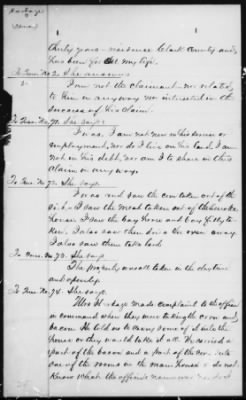 thirty years - residence Clark County and
has been for all my life.
To Qun. No. 2. She answers
I am not the claimant - nor related
to him in any way nor interested in the
success of his claim.
To Ques. No. 71. She says
I was, I am not now in his service or
employment, nor do I live on his land. I am
not in his debt, nor am I to share in this
claim in any way.
To Ques. No. 72. She says.
I was and saw the corn taken out of the
crib. I saw the meat taken out of the smoke
house. I saw the bay horse and bay filly ta-
ken. I also saw them drive the oxen away.
I also saw them take lard
To Ques. No. 73. She says
The property was all taken in the daytime
and openly.
To Ques. No. 74. She says.
Mrs. made complaint to the officer
in command when they were taking the corn and
bacon. He told us to carry some of it into the
house or they would take it all. We carried a
part of the bacon and a part of the corn into
one of the rooms in the main house. I do not
know what the officer's name was